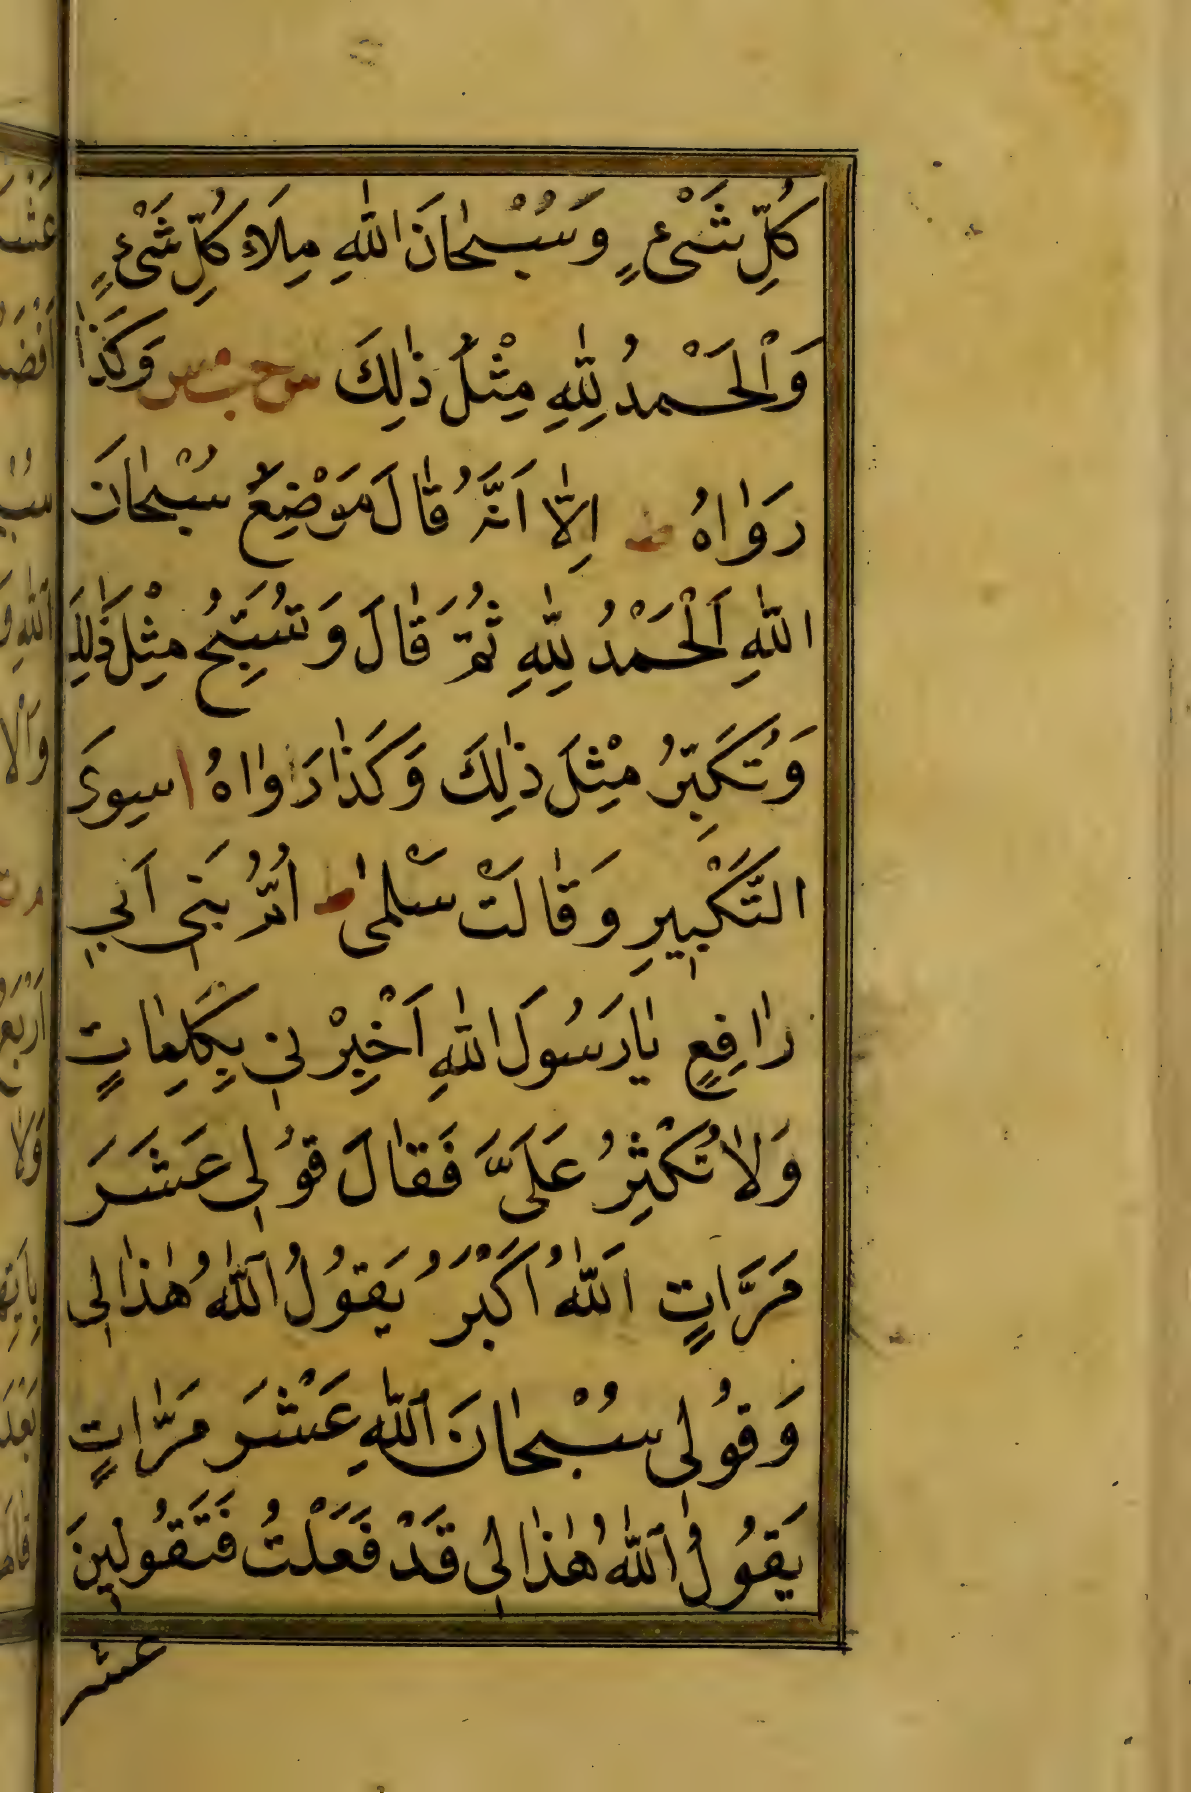 كُلِّ شَىْءٍ وَسُبْحٰانَ اللّٰهِ مِلَاءَ كُلِّ شَىْءٍ
وَالْحَمْدُ لِلّٰهِ مِثْلُ ذٰلِكَ س حب مس وَكَذٰا
رَوٰاهُ ط اِلّٰا اَنَّهُ قٰالَ مَوْضِعَ سُبْحٰانَ
اللّٰهِ اَلْحَمْدُ لِلّٰهِ ثُمَّ قٰالَ وَتُسَبِّحُ مِثْلَ ذٰلِكَ
وَتُكَبِّرُ مِثْلَ ذٰلِكَ وَكَذٰا رَوٰاهُ ا سِوَى
التَّكْبِيرِ وَقٰالَتْ سَلْمىٰ ط اُمُّ بَنِي اَبِي
رٰافِعٍ يٰا رَسُولَ اللّٰهِ اَخْبِرْنِي بِكَلِمٰاتٍ
وَلٰا تُكْثِرُ عَلَىَّ فَقٰالَ قُولِي عَشَرَ
مَرَّاتٍ اَللّٰهُ اَكْبَرُ يَقُولُ اللّٰهُ هٰذٰا لِي
وَقُولِي سُبْحٰانَ اللّٰهِ عَشْرَ مَرّٰاتٍ
يَقُولُ اللّٰهُ هٰذٰا لِي قَدْ فَعَلْتُ فَتَقُولِينَ
عشر